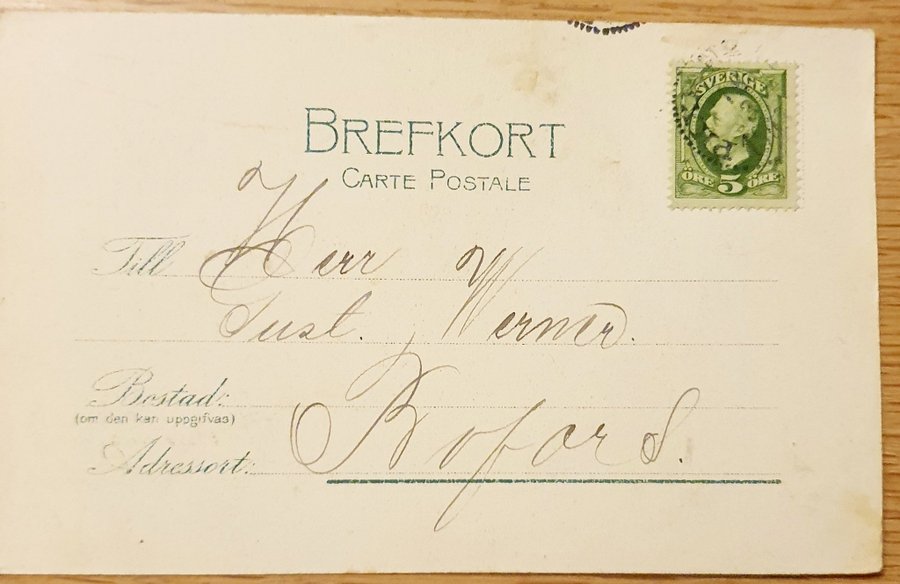 BREFKORT
CARTE POSTALE
SVERIGE
ÖRE 5 ÖRE
Till Herr
Gust. Werner.
Bostad:
(om den kan uppgifvas)
Adressort: Bofors.